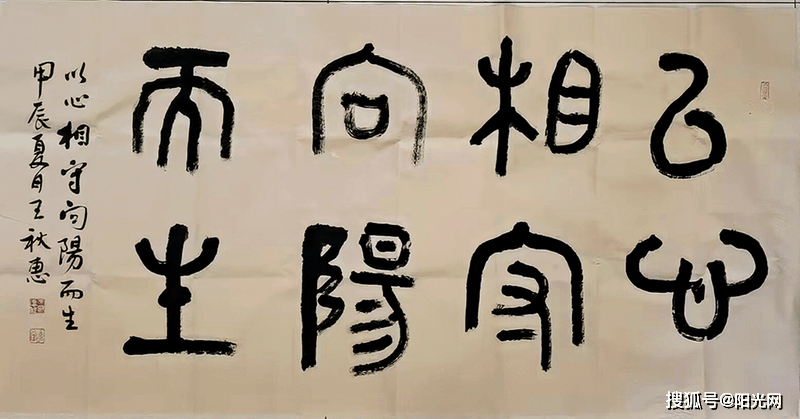 以心
相守
向陽
而生
以心相守向陽而生
甲辰夏月王秋惠
搜狐号@阳光网